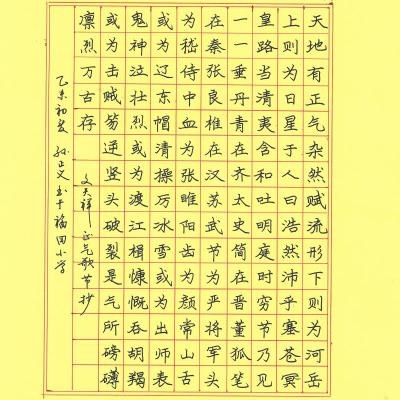 天地有正气杂然赋流形下则为河岳
上则为日星于人曰浩然沛乎塞苍冥
皇路当清夷含和吐明庭时穷节乃见
一一垂丹青在齐太史简在晋董狐笔
在秦张良椎在汉苏武节为严将军头
为嵇侍中血为张睢阳齿为颜常山舌
或为辽东帽清操厉冰雪或为出师表
鬼神泣壮烈或为渡江楫慷慨吞胡羯
或为击贼笏逆竖头破裂是气所磅礴
凛烈万古存 文天祥·正气歌节抄
乙未初夏 孙正义书于福田小学